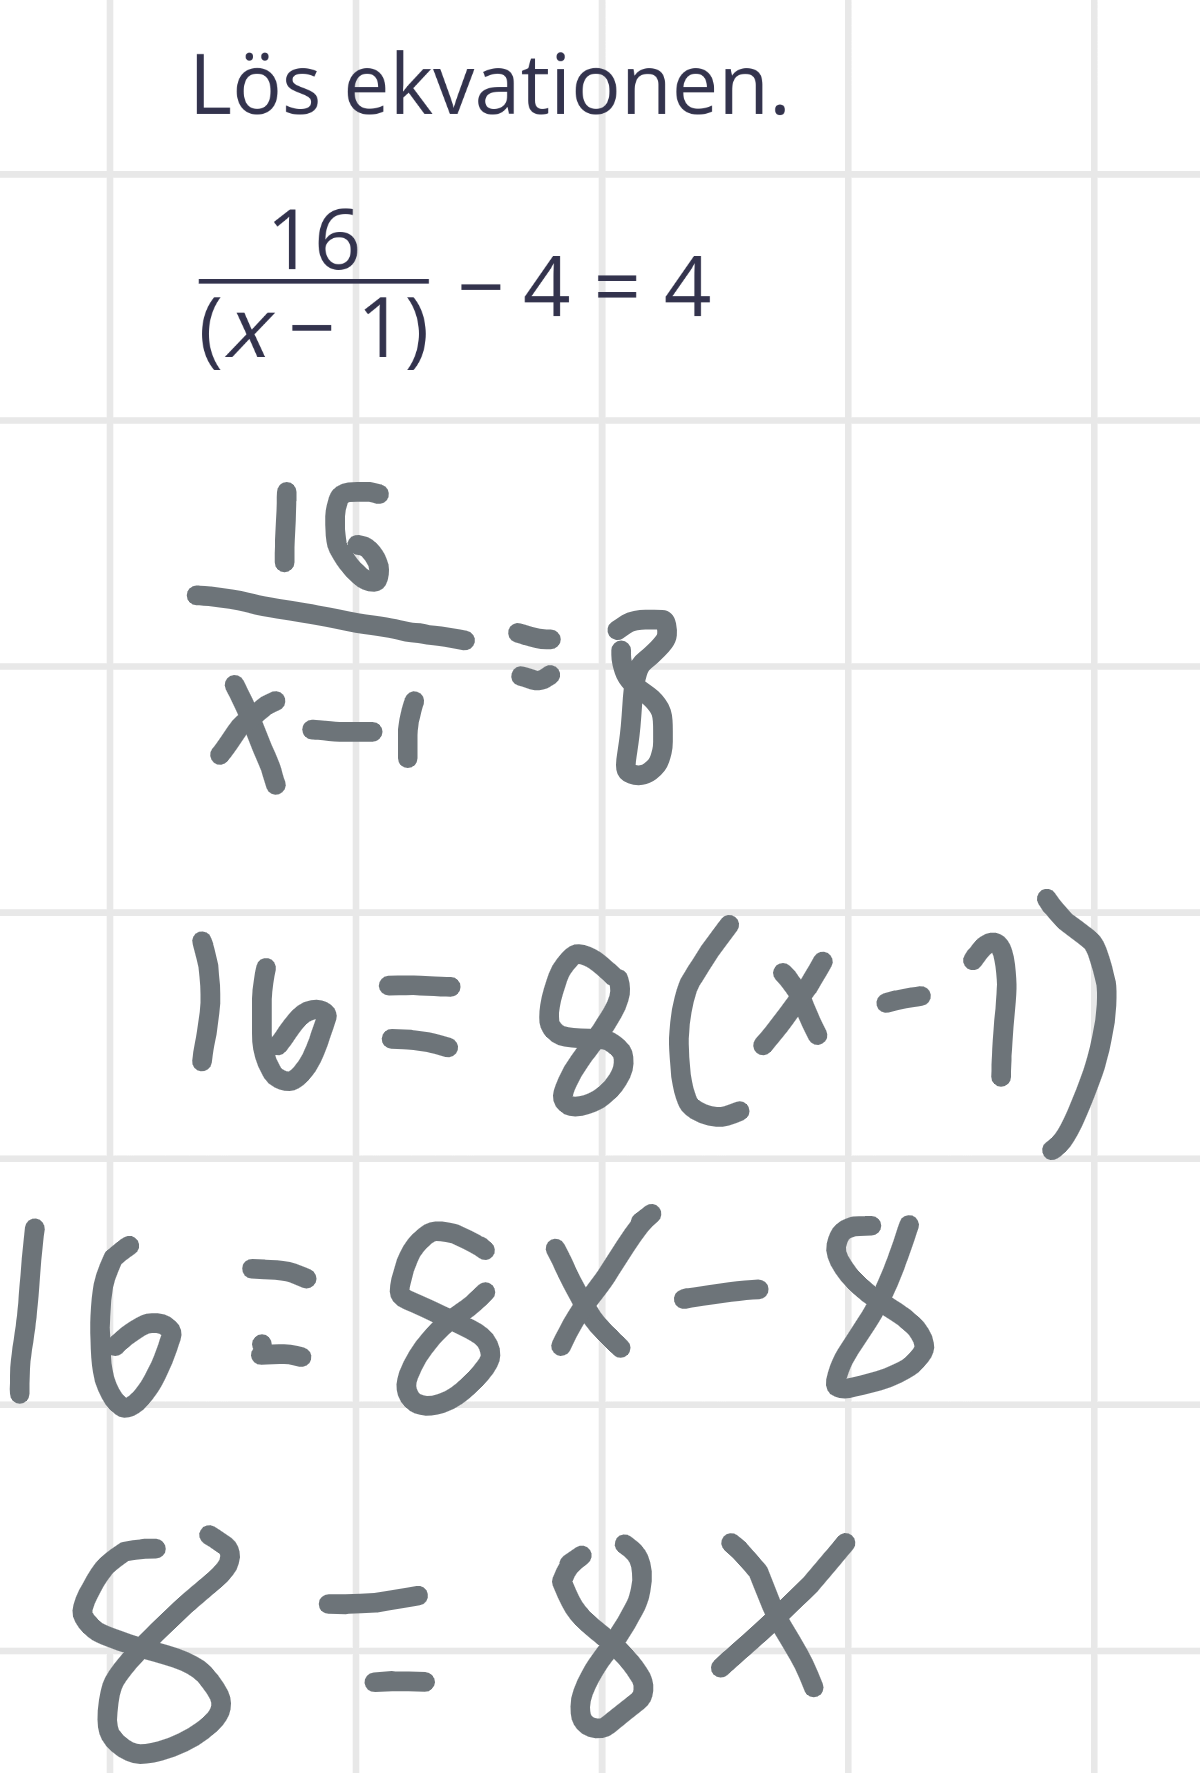 Lös ekvationen.
16/(x − 1) − 4 = 4
16/x-1 = 8
16 = 8(x-1)
16 = 8x - 8
8 = 8x